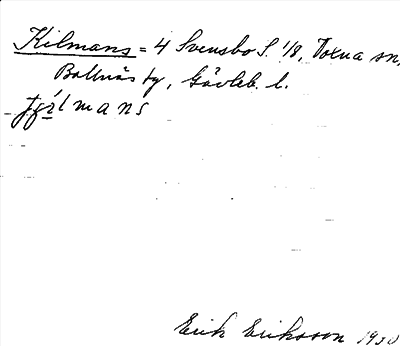 Kilmans = 4 Svensbo S. 1/8, Voxna sn,
Bollnäs tg, Gävleb. l.
mans
Erik Eriksson 1930